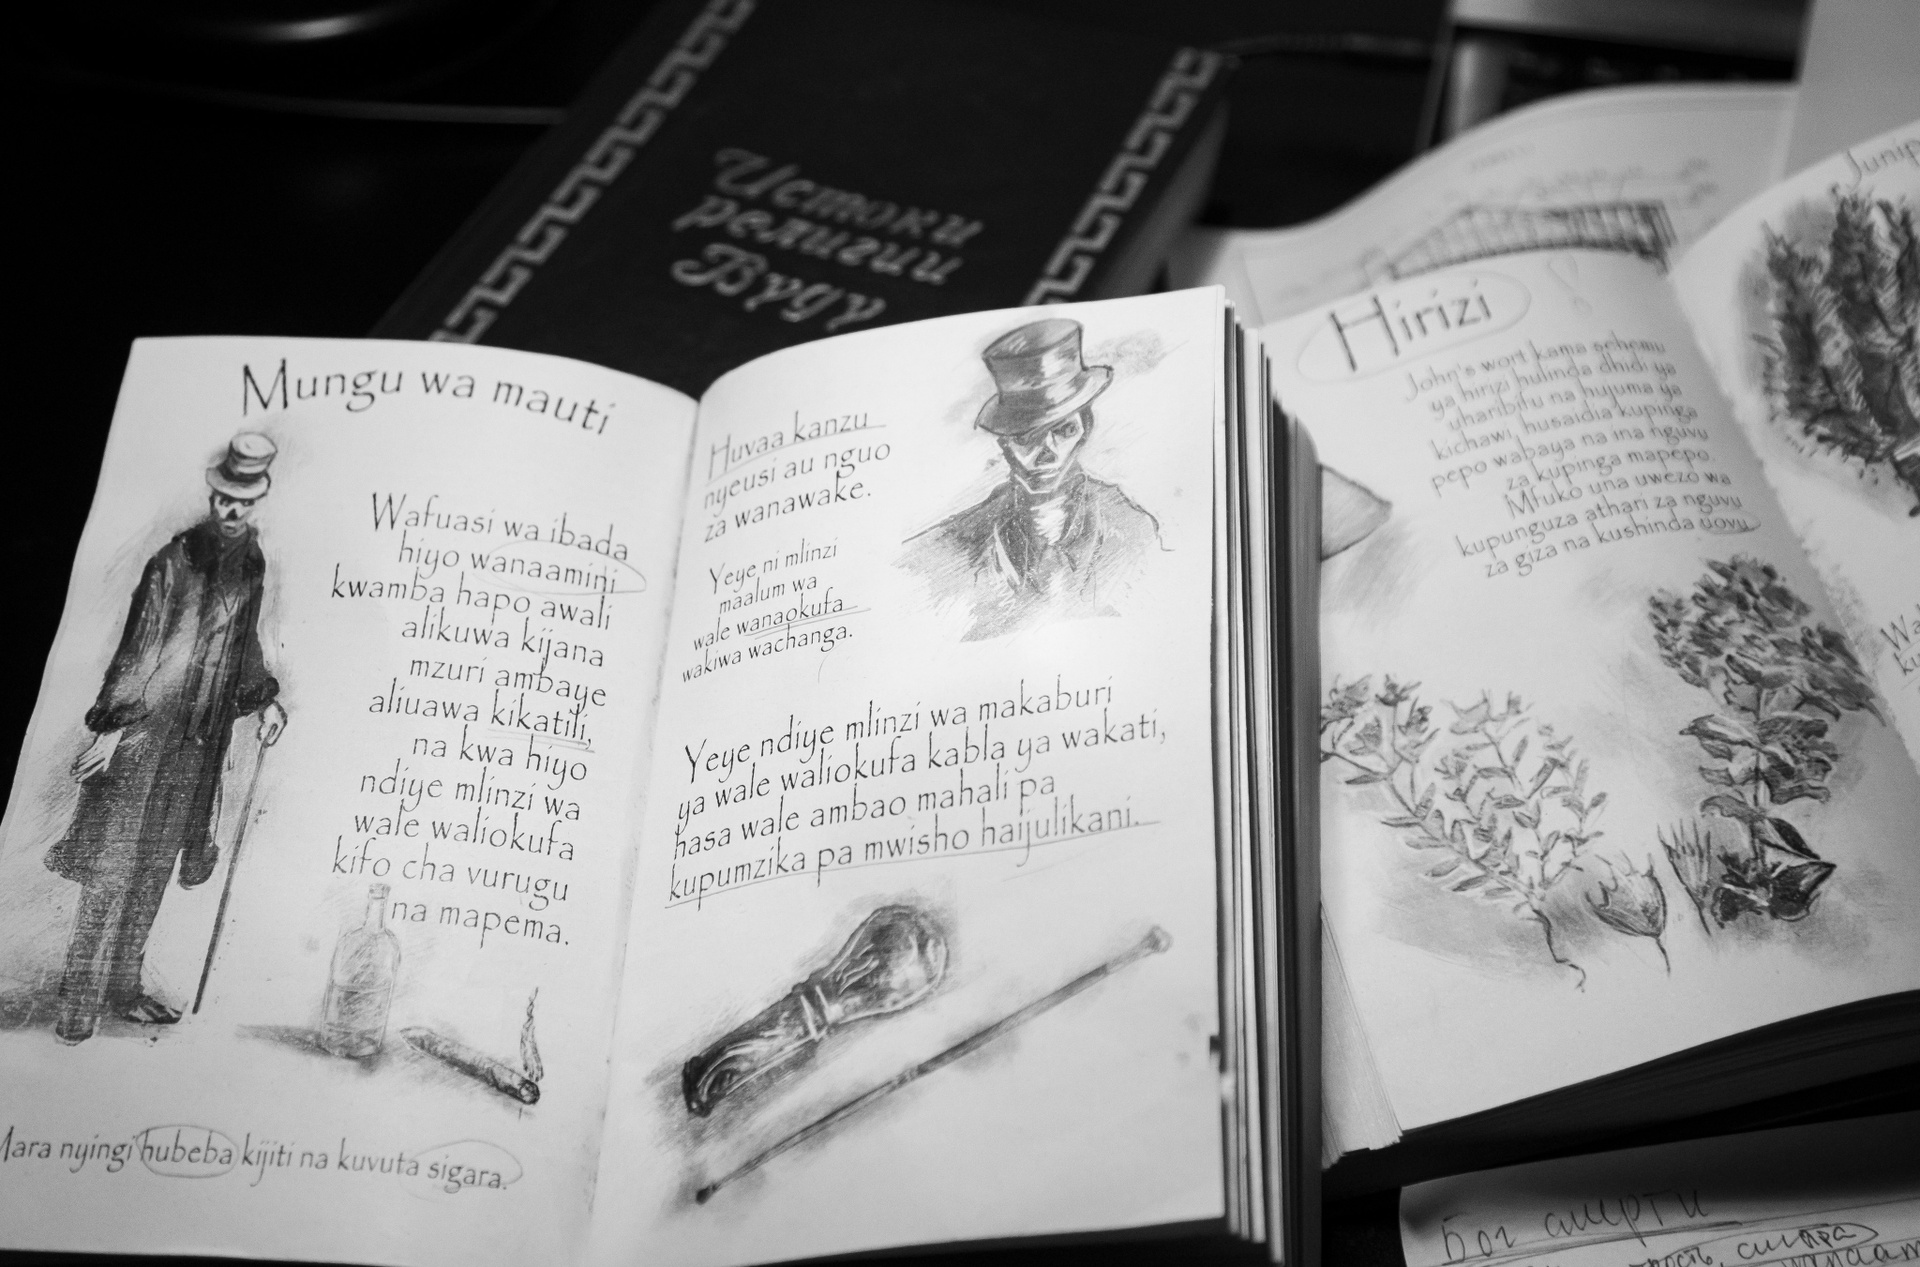 Истоки
религии
Вуду
Mungu wa mauti
Wafuasi wa ibada
hiyo wanaamini
kwamba hapo awali
alikuwa kijana
mzuri ambaye
aliuawa kikatili,
na kwa hiyo
ndiye mlinzi wa
wale waliokufa
kifo cha vurugu
na mapema.
Mara nyingi hubeba kijiti na kuvuta sigara.
Huvaa kanzu
nyeusi au nguo
za wanawake.
Yeye ni mlinzi
maalum wa
wale wanaokufa
wakiwa wachanga.
Yeye ndiye mlinzi wa makaburi
ya wale waliokufa kabla ya wakati,
hasa wale ambao mahali pa
kupumzika pa mwisho haijulikani.
Hirizi
John's wort kama sehemu
ya hirizi hulinda dhidi ya
uharibifu na hujuma ya
kichawi, husaidia kupinga
pepo wabaya na ina nguvu
za kupinga mapepo.
Mfuko una uwezo wa
kupunguza athari za nguvu
za giza na kushinda uovu.
Junip
Бог смерти